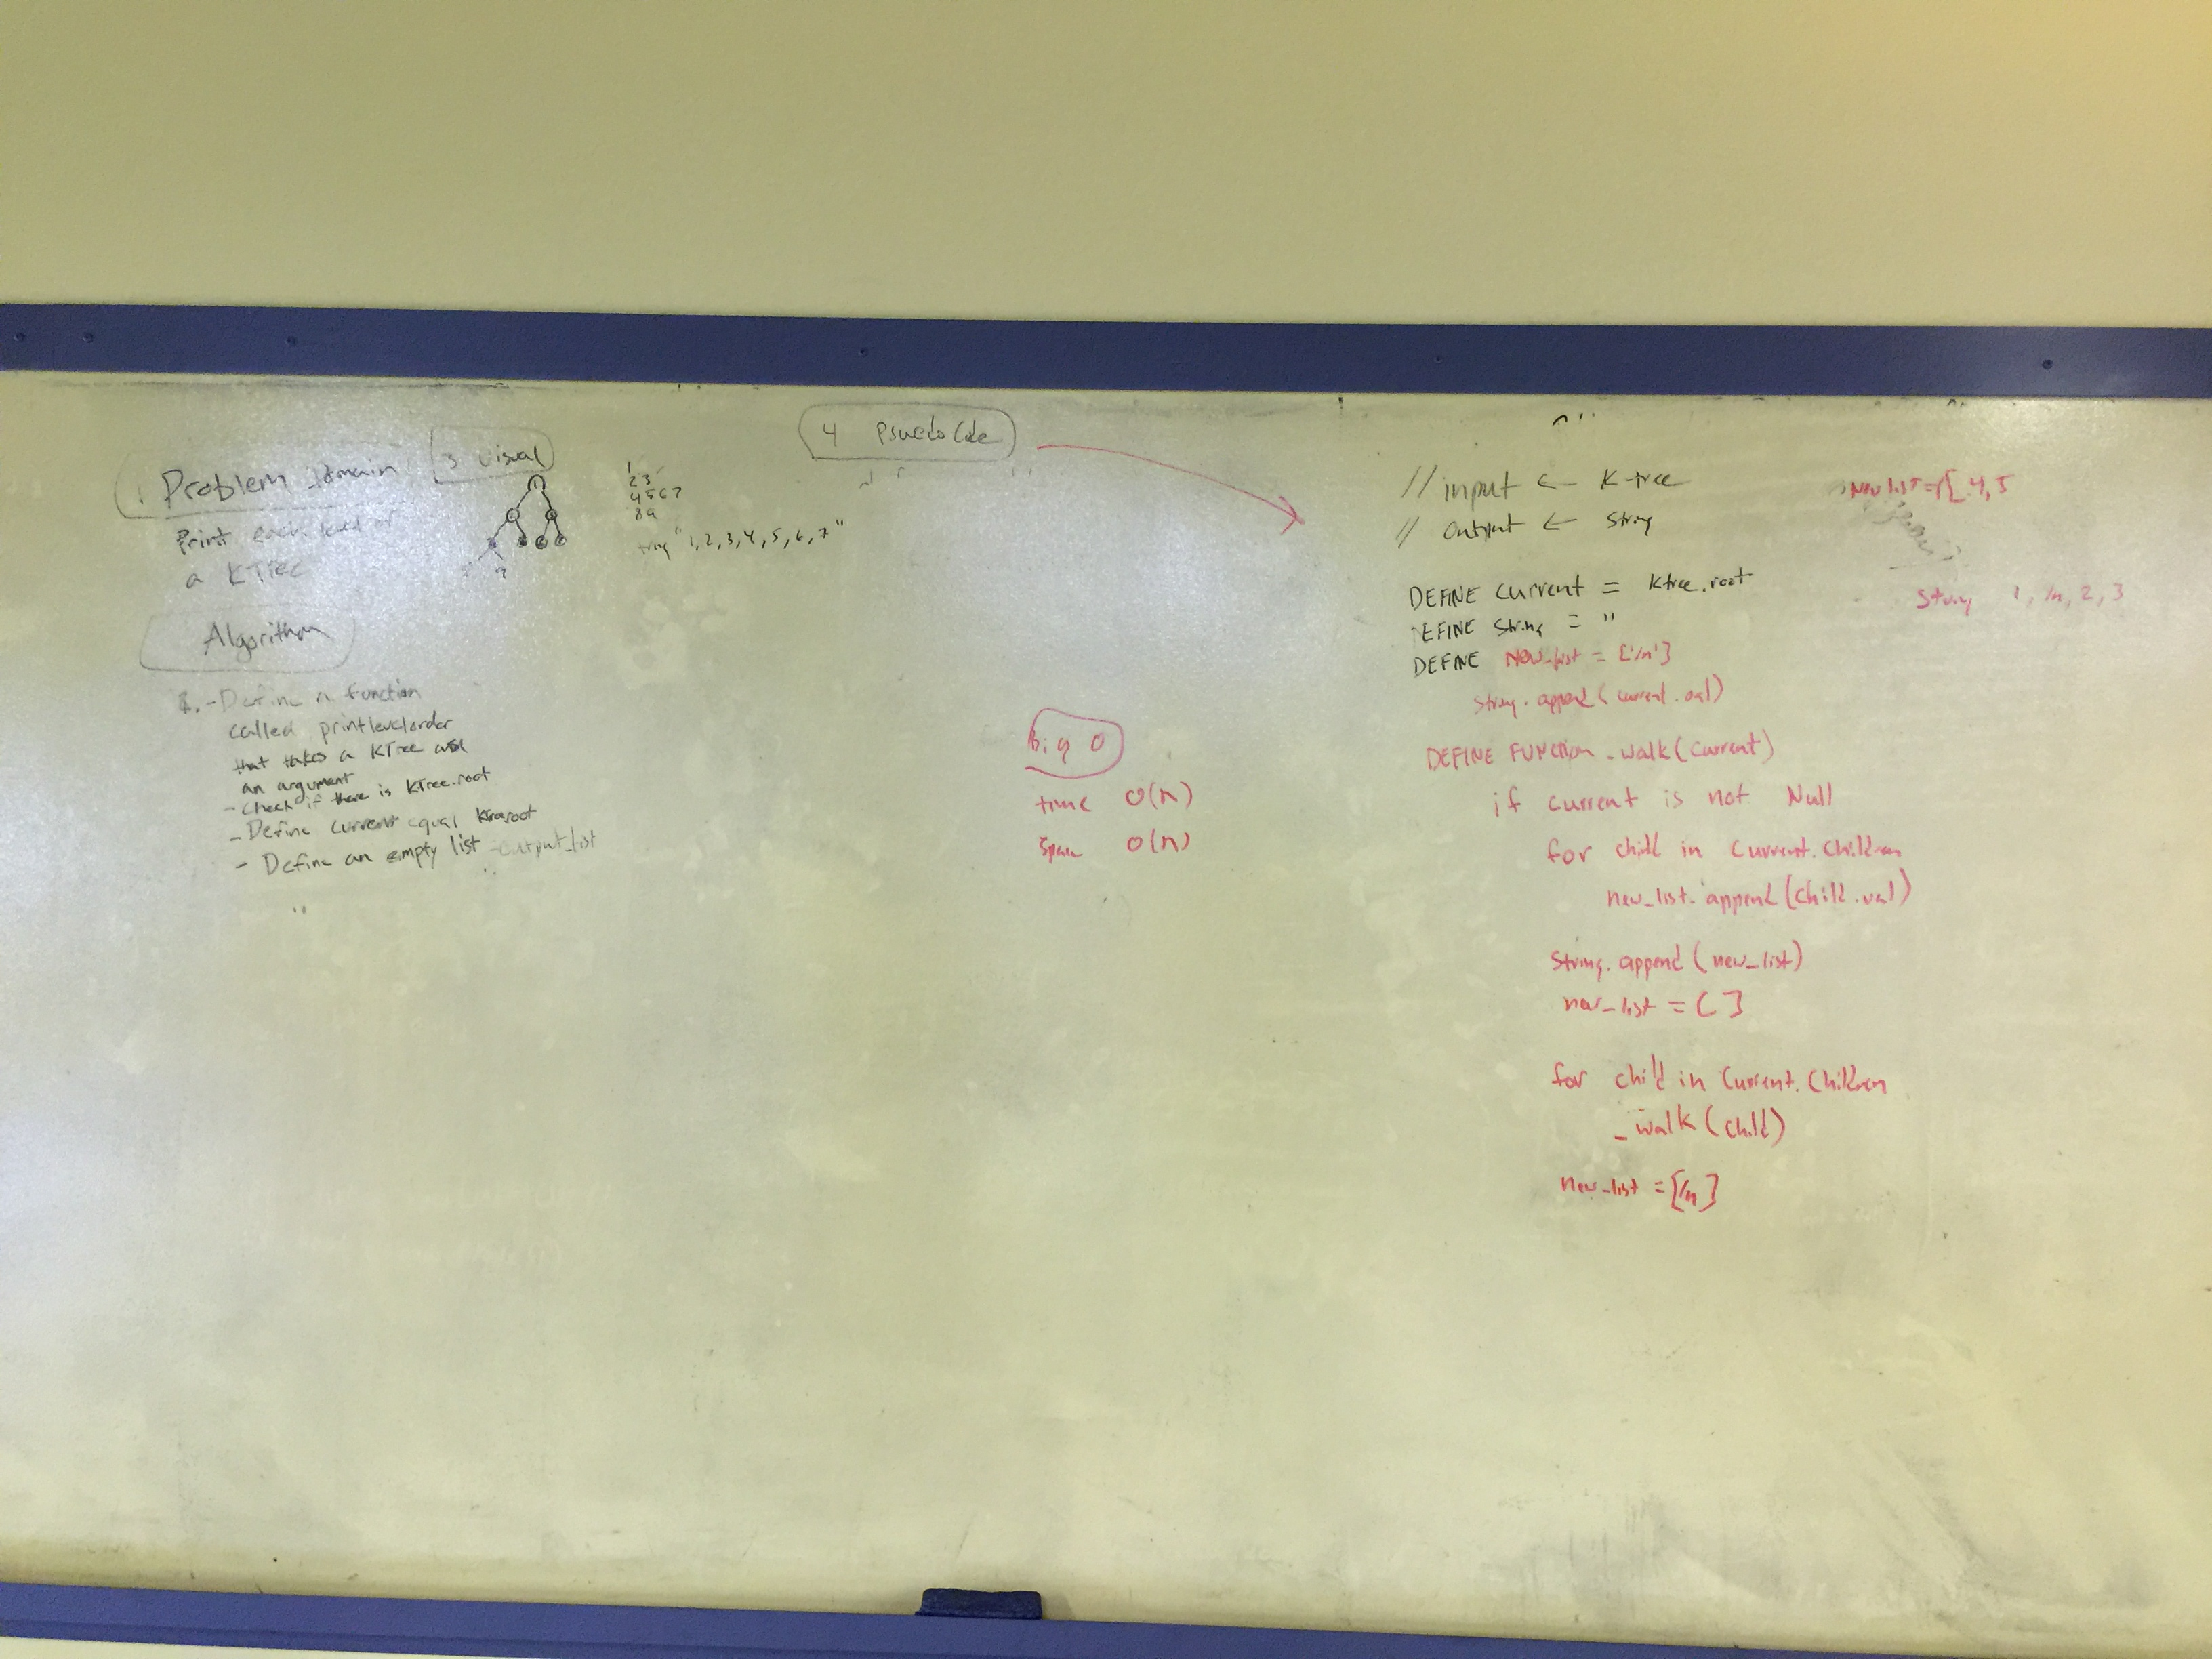 1 Problem domain
Print each level of
a KTree
3 Visual
1
2 3
4 5 6 7
8 9
"1,2,3,4,5,6,7"
Algorithm
- Define a function
called printlevelorder
that takes a KTree
an argument
- Check if there is KTree.root
- Define current equal Ktree.root
- Define an empty list output_list
4 Psuedo Code
big O
time O(n)
Space O(n)
// input ← K-tree
// output ← string
DEFINE current = Ktree.root
DEFINE string = ''
DEFINE New_list = ['/n']
string.append(current.val)
DEFINE FUNCTION _walk(current)
if current is not Null
for child in current.children
new_list.append(child.val)
String.append(new_list)
new_list = []
for child in current.children
_walk(child)
new_list = [/n]
New list = [ 4, 5
String 1, /n, 2, 3